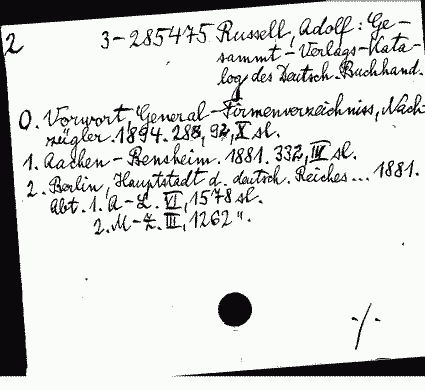 2 3-285475 Russell, Adolf: Ge-
sammt-Verlags-Kata-
log des Deutsch. Buchhand.
0. Vorwort, General-Firmenverzeichniss, Nach-
zügler. 1894. 288, 92, X sl.
1. Aachen-Bensheim. 1881. 332, III sl.
2. Berlin, Hauptstadt d. deutsch. Reiches... 1881.
Abt. 1. A-L. VI, 1578 sl.
2. M-Z. III, 1262 ".